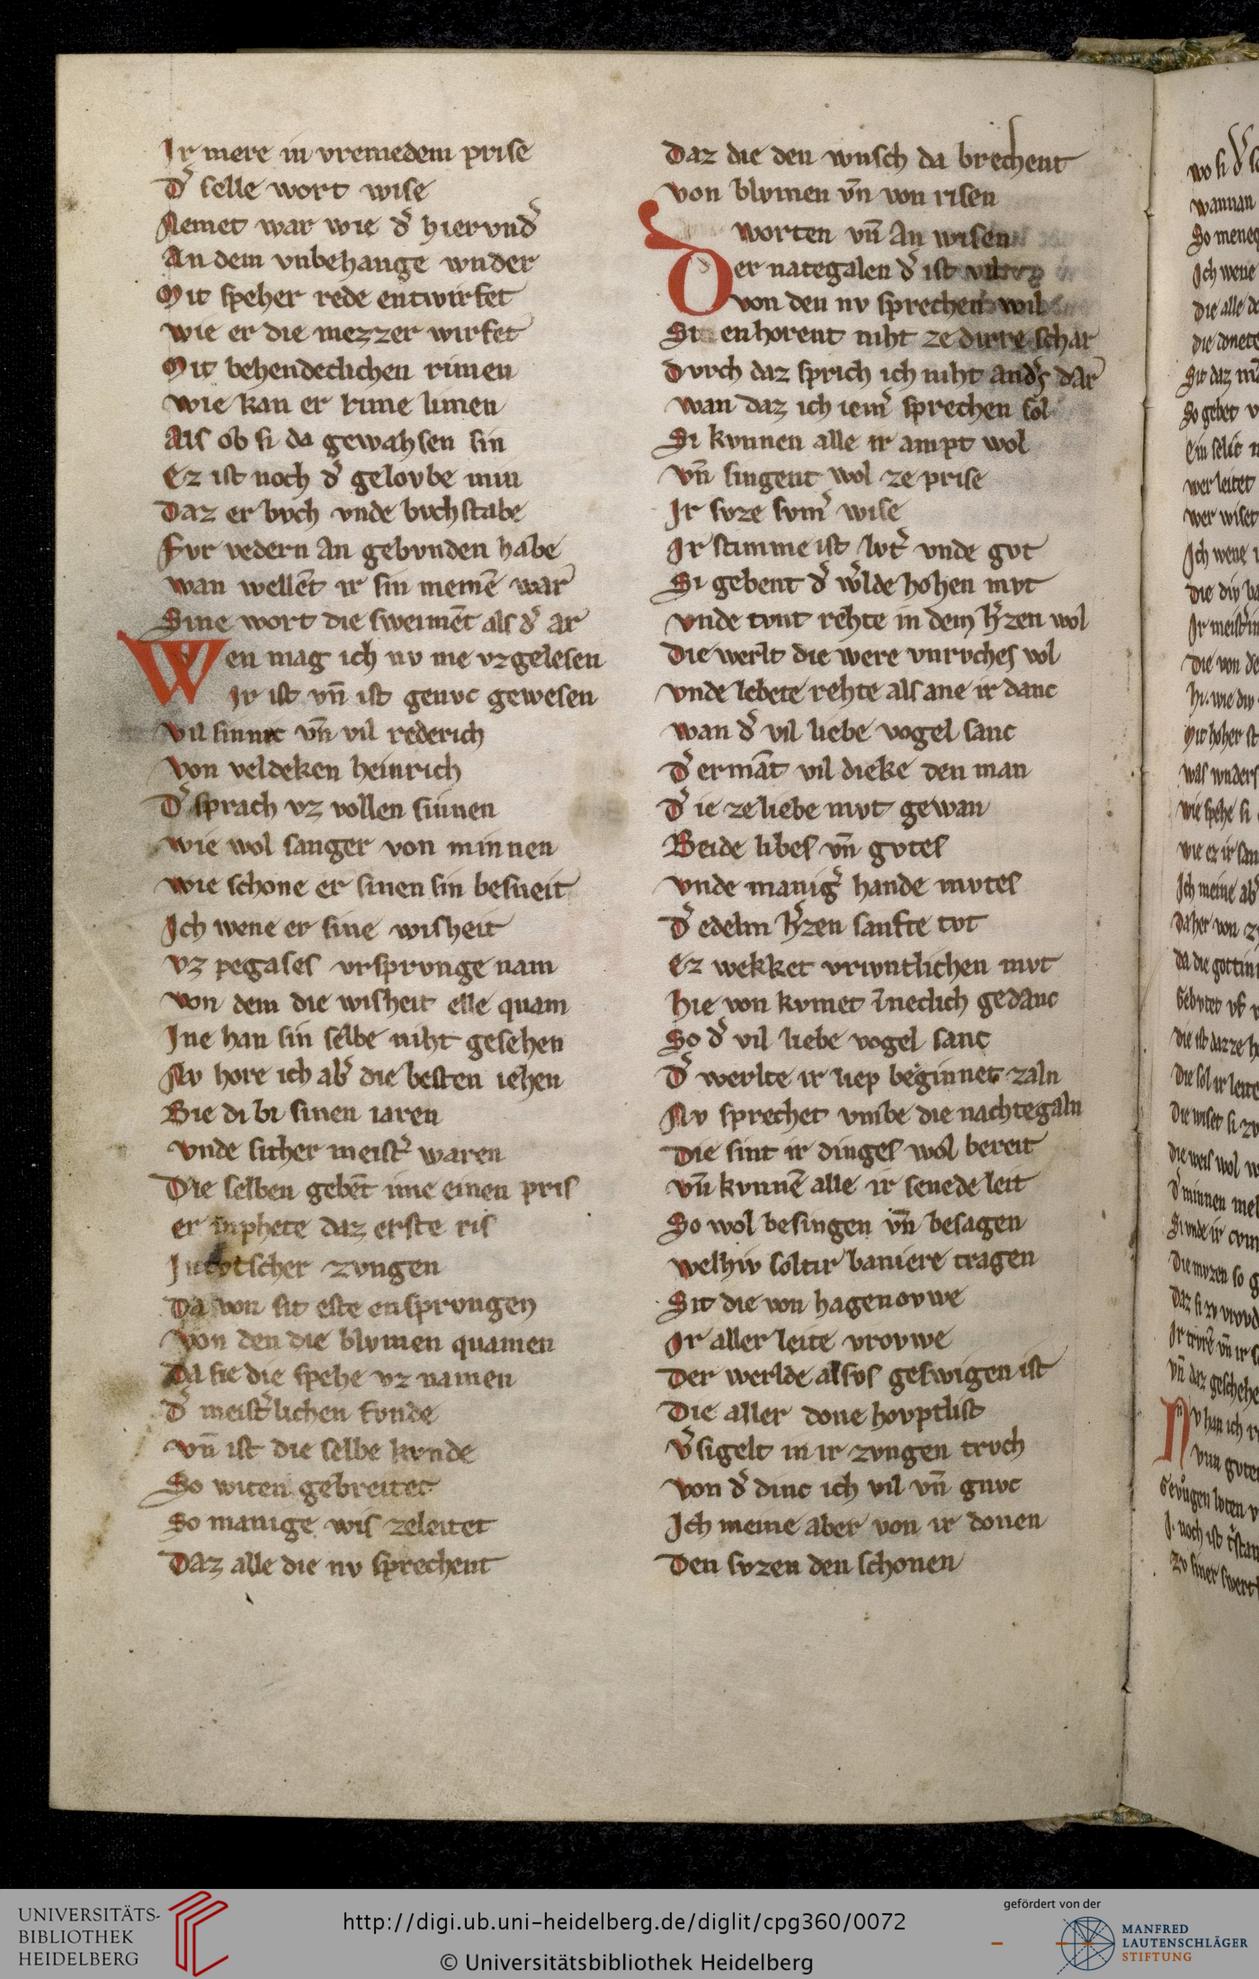 Ir mere in vremedem prise
Dˢ selle wort wise
Nemet war wie dˢ hiervndˢ
An dem vnbehange wnder
Mit speher rede entwirket
wie er die mezzer wirket
Mit behendeclichen rimen
wie kan er rime limen
Als ob si da gewahsen sin
Ez ist noch dˢ gelovbe min
Daz er bvch vnde bvchstabe
Fvr vedern an gebvnden habe
wan wellēt ir sin nemē war
Sine wort die sweimēt als dˢ ar
Wen mag ich nv me vzgelesen
Ir ist vn̄ ist genvc gewesen
Vil sinnic vn̄ vil rederich
Von veldeken heinrich
Dˢ sprach vz vollen sinnen
wie wol sanger von minnen
wie schone er sinen sin besneit
Ich wene er sine wisheit
vz pegases vrsprvnge nam
von dem die wisheit elle quam
Ine han sin selbe niht gesehen
Nv hore ich abˢ die besten iehen
Bie di bi sinen iaren
vnde sither meistˢ waren
Die selben gebēt ime einen pris
er inphete daz erste ris
In tvtscher zvngen
Da von sit este ensprvngen
Von den die blvmen quamen
Da sie die spehe vz namen
Dˢ meistˢlichen fvnde
vn̄ ist die selbe kvnde
So witen gebreitet
So manige wis zeleitet
Daz alle die nv sprechent
Daz die den wnsch da brechent
von blvmen vn̄ von risen
worten vn̄ an wisen
Der nategalen dˢ ist vil
von den nv sprechen wil
Si enhorent niht ze dirre schar
Dvrch daz sprich ich niht andˢs dar
wan daz ich iemˢ sprechen sol
Si kvnnen alle ir ampt wol
Vn̄ singent wol ze prise
Ir svze svmˢ wise
Ir stimme ist lvtˢ vnde gvt
Si gebent dˢ wˢlde hohen mvt
Vnde tvnt rehte in dem hˢzen wol
Die werlt die were vnrvches vol
Vnde lebete rehte als ane ir danc
wan dˢ vil liebe vogel sanc
Dˢ ermāt vil dicke den man
Dˢ ie ze liebe mvt gewan
Beide libes vn̄ gvtes
Vnde manigˢ hande mvtes
Dˢ edelm hˢzen sanfte tvt
Ez wekket vrivntlichen mvt
Hie von kvmet īneclich gedanc
So dˢ vil liebe vogel sanc
Dˢ werlte ir liep beginnet zaln
Nv sprechet vmbe die nachtegaln
Die sint ir dinges wol bereit
Vn̄ kvnnē alle ir senede leit
So wol besingen vn̄ besagen
welhiv soltir baniere tragen
Sit die von hagenovwe
Ir aller leite vrovwe
Der werlde alsvs geswigen ist
Die aller done hovptlist
Vˢsigelt in ir zvngen trvch
Von dˢ dinc ich vil vn̄ gnvc
Ich meine aber von ir donen
Den svzen den schonen
UNIVERSITÄTS-
BIBLIOTHEK
HEIDELBERG
http://digi.ub.uni-heidelberg.de/diglit/cpg360/0072
© Universitätsbibliothek Heidelberg
gefördert von der
MANFRED
LAUTENSCHLÄGER
STIFTUNG